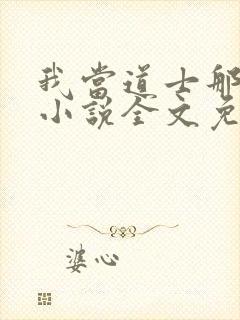 我當道士那
小說全文免
婆心